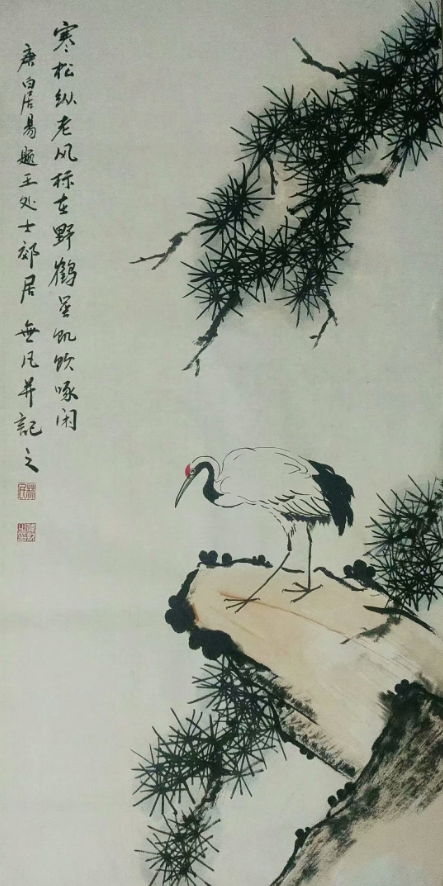 寒松纵老风标在野鹤虽饥饮啄闲
唐白居易题王处士郊居 無凡并記之